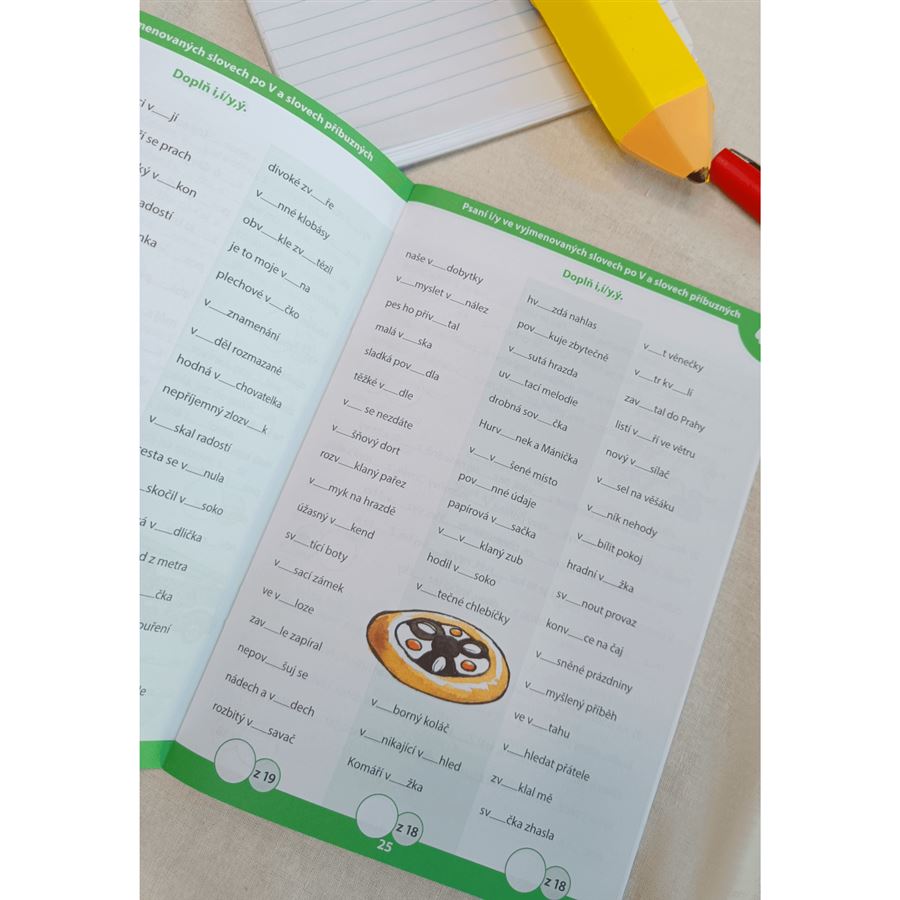 menovaných slovech po V a slovech příbuzných
Doplň i,í/y,ý.
v___jí
se prach
v___kon
radostí
divoké zv___ře
v___nné klobásy
obv___kle zv___tězil
je to moje v___na
plechové v___čko
v___znamenání
v___děl rozmazaně
hodná v___chovatelka
nepříjemný zlozv___k
v___skal radostí
se v___nula
skočil v___soko
v___dlička
z metra
___čka
Psaní i/y ve vyjmenovaných slovech po V a slovech příbuzných
Doplň i,í/y,ý.
naše v___dobytky
v___myslet v___nález
pes ho přiv___tal
malá v___ska
sladká pov___dla
těžké v___dle
v___ se nezdáte
v___šňový dort
rozv___klaný pařez
v___myk na hrazdě
úžasný v___kend
sv___tící boty
v___sací zámek
ve v___loze
zav___le zapíral
nepov___šuj se
nádech a v___dech
rozbitý v___savač
z 19
hv___zdá nahlas
pov___kuje zbytečně
v___sutá hrazda
uv___tací melodie
drobná sov___čka
Hurv___nek a Mánička
v___v___šené místo
pov___nné údaje
papírová v___sačka
v___v___klaný zub
hodil v___soko
v___tečné chlebíčky
v___borný koláč
v___nikající v___hled
Komáří v___žka
z 18
v___t věnečky
v___tr kv___lí
zav___tal do Prahy
listí v___ří ve větru
nový v___silač
v___sel na věšáku
v___ník nehody
v___bílit pokoj
hradní v___žka
sv___nout provaz
konv___ce na čaj
v___sněné prázdniny
v___myšlený příběh
ve v___tahu
v___hledat přátele
zv___klal mě
sv___čka zhasla
z 18
25